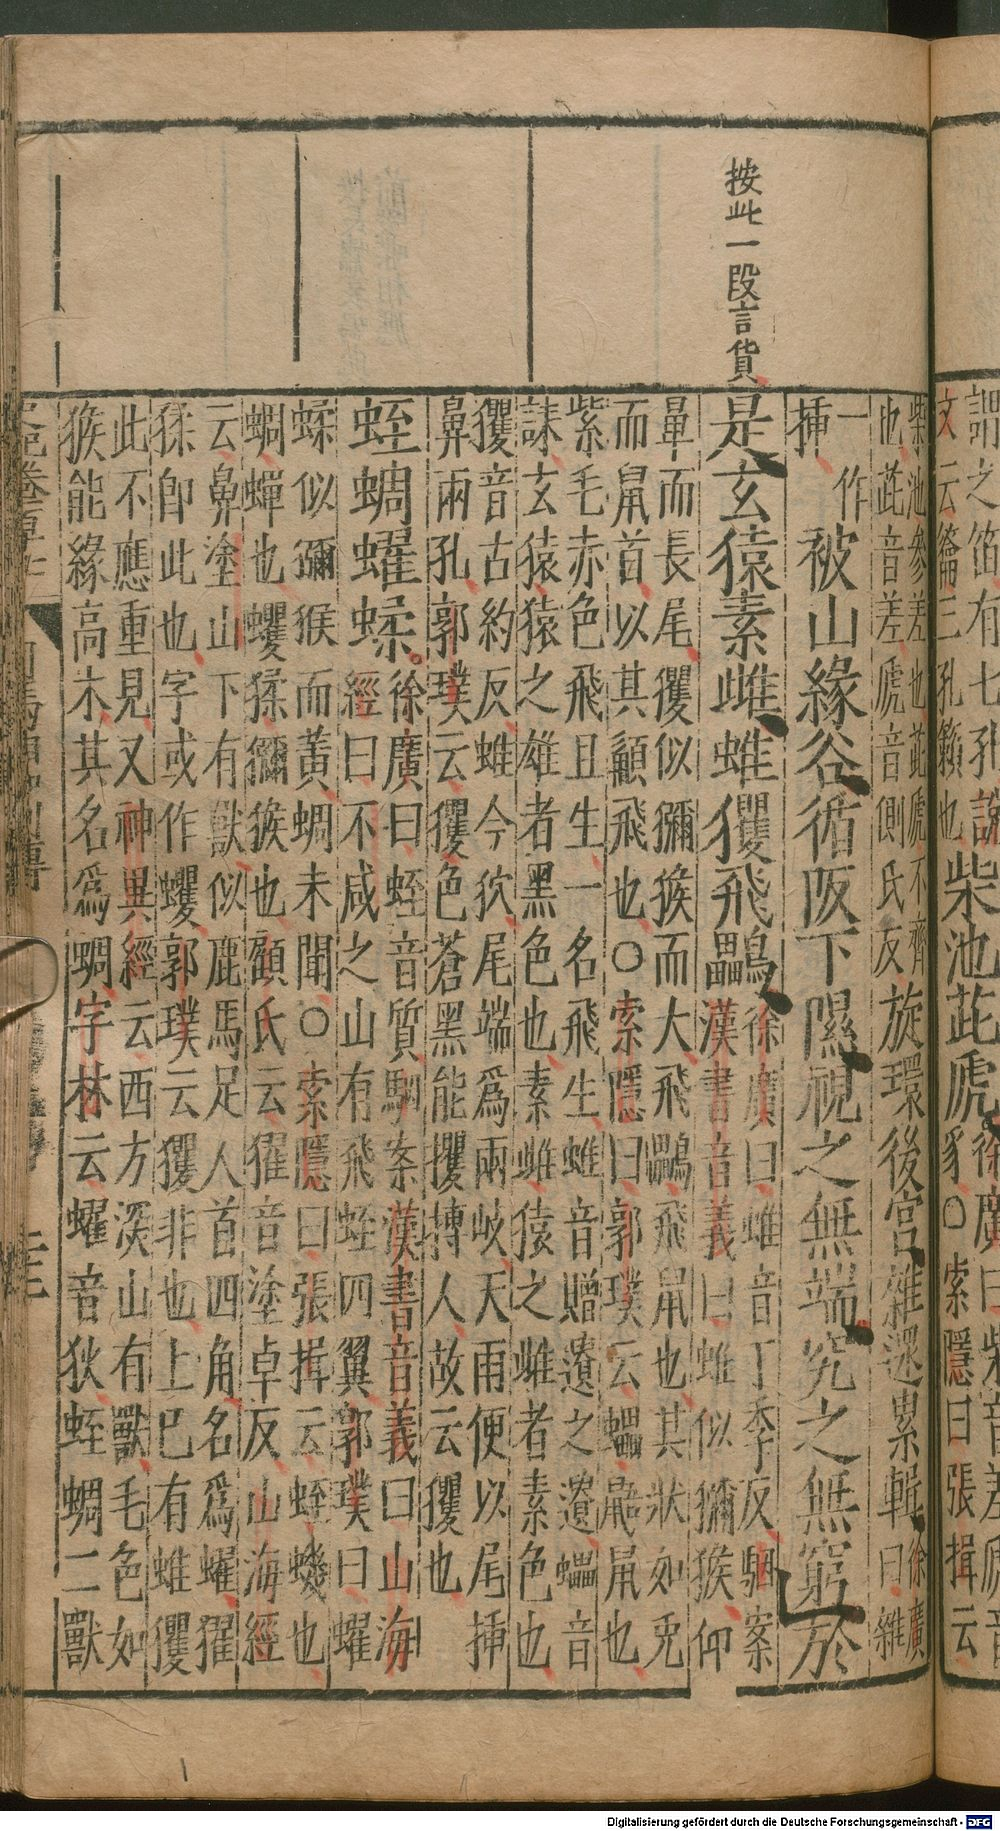 謂之笛有七孔說
文云籥三孔籟也
柴池茈虒
徐廣曰柴音差虒音
豸○索隱曰張揖云
柴池參差也茈虒不齊
也茈音差虒音側氏反
旋環後宮雜遝累輯
徐廣
曰雜
一作
揷
被山緣谷循阪下隰視之無端究之無窮於
按此一段言貨
是玄猿素雌蜼玃飛鸓
徐廣曰蜼音丁季反駰案
漢書音義曰蜼似獼猴仰
鼻而長尾玃似獼猴而大飛鸓飛鼠也其狀如兎
而鼠首以其顄飛也○索隱曰郭璞云鸓鼯鼠也
紫毛赤色飛且生一名飛生蜼音贈遺之遺鸓音
誄玄猿猿之雄者黑色也素雌猿之雌者素色也
玃音古約反蜼今狖尾端爲兩岐天雨便以尾揷
鼻兩孔郭璞云玃色蒼黑能攫搏人故云玃也
蛭蜩蠗蝚
徐廣曰蛭音質駰案漢書音義曰山海
經曰不咸之山有飛蛭四翼郭璞曰蠗
蝚似獼猴而黃蜩未聞○索隱曰張揖云蛭蟣也
蜩蟬也蠼猱獼猴也顧氏云玃音塗卓反山海經
云鼻塗山下有獸似鹿馬足人首四角名爲蠗玃
猱卽此也字或作蠼郭璞云玃非也上已有蜼玃
此不應重見又神異經云西方深山有獸毛色如
猴能緣高木其名爲蜩字林云蠗音狄蛭蜩二獸
Digitalisierung gefördert durch die Deutsche Forschungsgemeinschaft - DFG